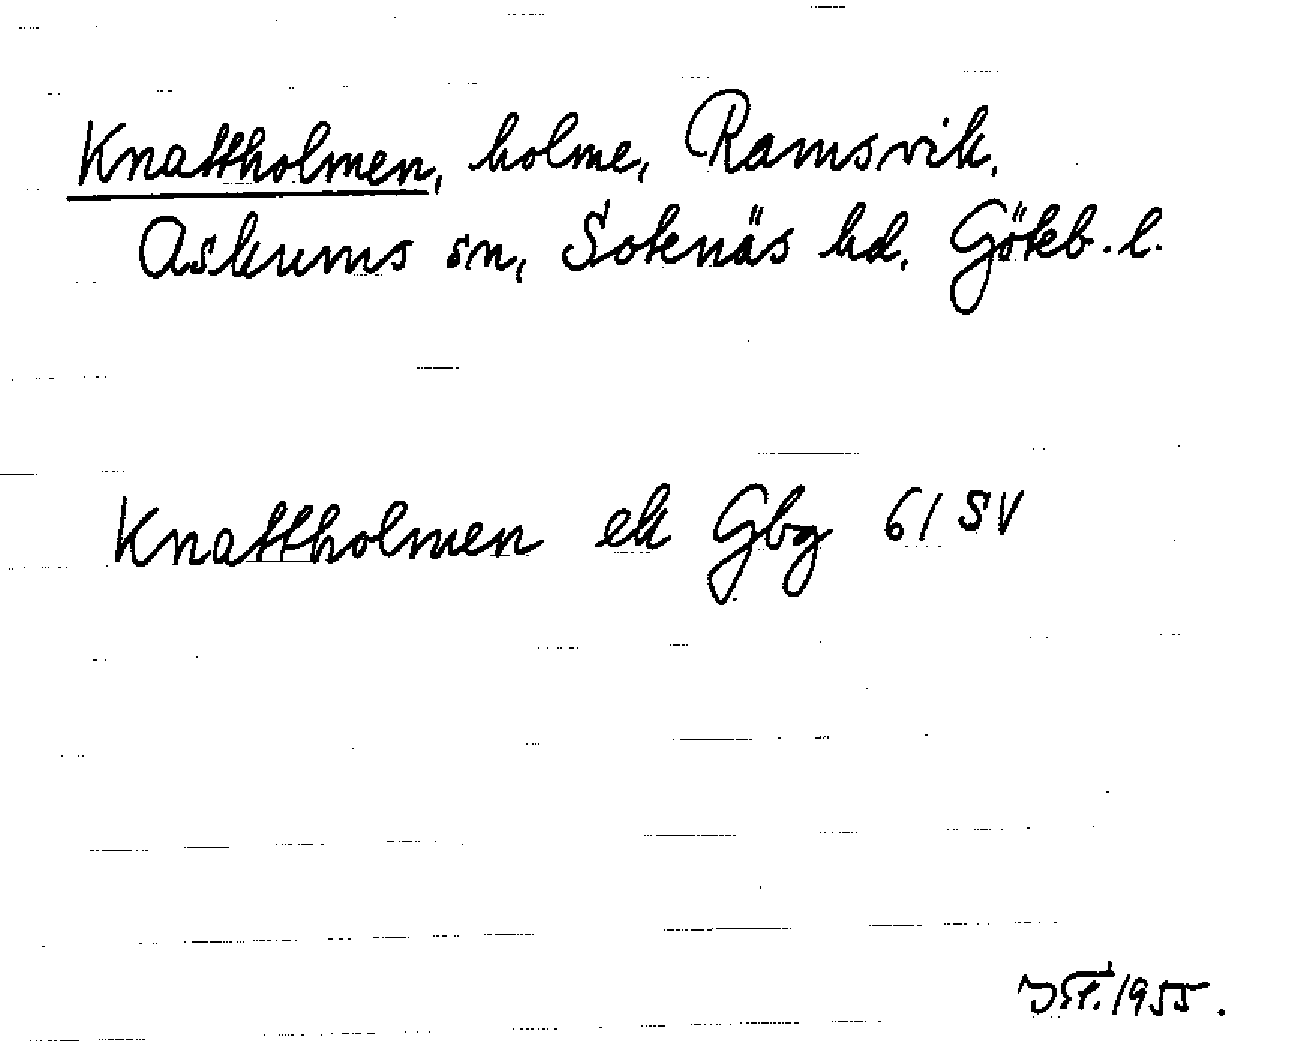 Knattholmen, holme, Ramsvik,
Askums sn, Sotenäs hd. Göteb. l.
Knattholmen ek Gbg 61 SV
1955.